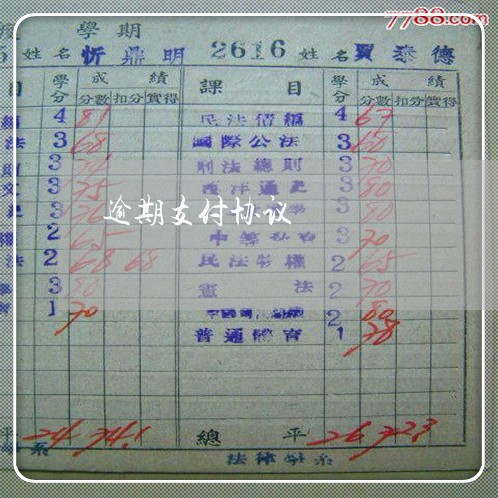 7788.com
學期
姓名 忻鼎明 2616 姓名 賈泰德
目 學分 成績 課目 學分 成績
分數 扣分 實得 分數 扣分 實得
4 81 民法債編 4 67
法 3 68 國際公法 3 60
3 刑法總則 3 70
3 75 西洋通史 3 80
3 3 80
逾期支付协议
2 65 3 70
法 2 68 68 民法物權 2 65
3 80 憲法 2 70
1 70 2 80
普通體育 1 78
平 24 74.1 總平 26 72.3
系 法律學系